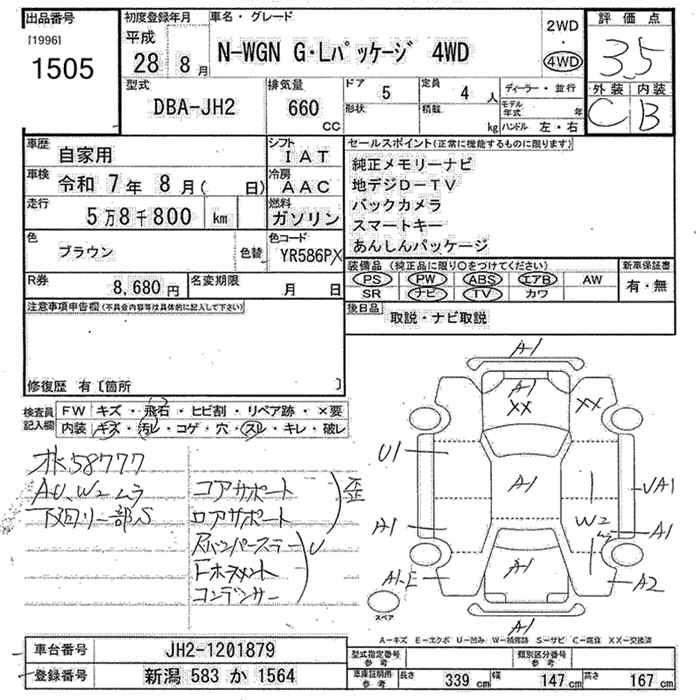 出品番号
[1996]
1505
初度登録年月
平成
28 8月
車名・グレード
N-WGN G・Lパッケージ 4WD
2WD
・
4WD
評価点
3.5
外装 内装
C B
型式
DBA-JH2
排気量
660 CC
ドア 5
形状
定員 4 人
積載 kg
ディーラー・並行
モデル年式 年
ハンドル 左・右
車歴 自家用
シフト IAT
車検 令和 7年 8月( 日)
冷房 AAC
走行 5万8千800 km
燃料 ガソリン
色 ブラウン 色替
色コード YR586PX
R券 8,680円
名変期限 月 日
セールスポイント(正常に機能するものに限ります)
純正メモリーナビ
地デジD-TV
バックカメラ
スマートキー
あんしんパッケージ
装備品 (純正品に限り〇をつけてください)
PS PW ABS エアB AW
SR ナビ TV カワ
新車保証書
有・無
後日品 取説・ナビ取説
注意事項申告欄(不具合内容等は具体的に記入して下さい)
修復歴 有〔箇所 〕
検査員記入欄
FW キズ・飛石・ヒビ割・リペア跡・×要
内装 キズ・汚レ・コゲ・穴・スレ・キレ・破レ
58777
AU、W2ムラ
下廻リ一部S
コアサポート
ロアサポート
歪
Rバンパーステー
Fホースメント
コンデンサー
U
A1
A1
XX
XX
U1
A1
UA1
W2
A1
A1
A1-E
A1
A2
スペア
A1
A-キズ E-エクボ U-凹み W-補修跡 S-サビ C-腐食 XX-交換済
車台番号 JH2-1201879
登録番号 新潟 583 か 1564
型式指定番号 参考
類別区分番号 参考
車庫証明所 参考
長さ 339 cm
幅 147 cm
高さ 167 cm